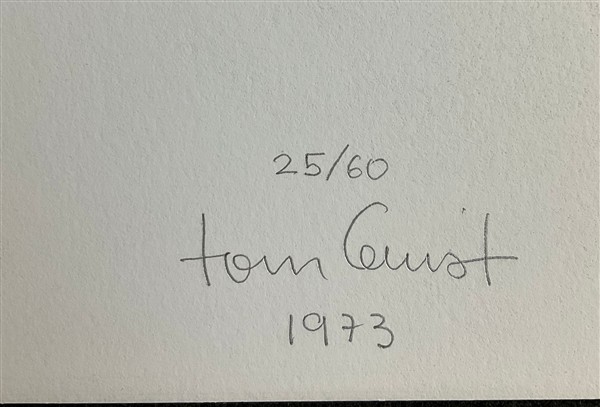 25/60
tom
1973